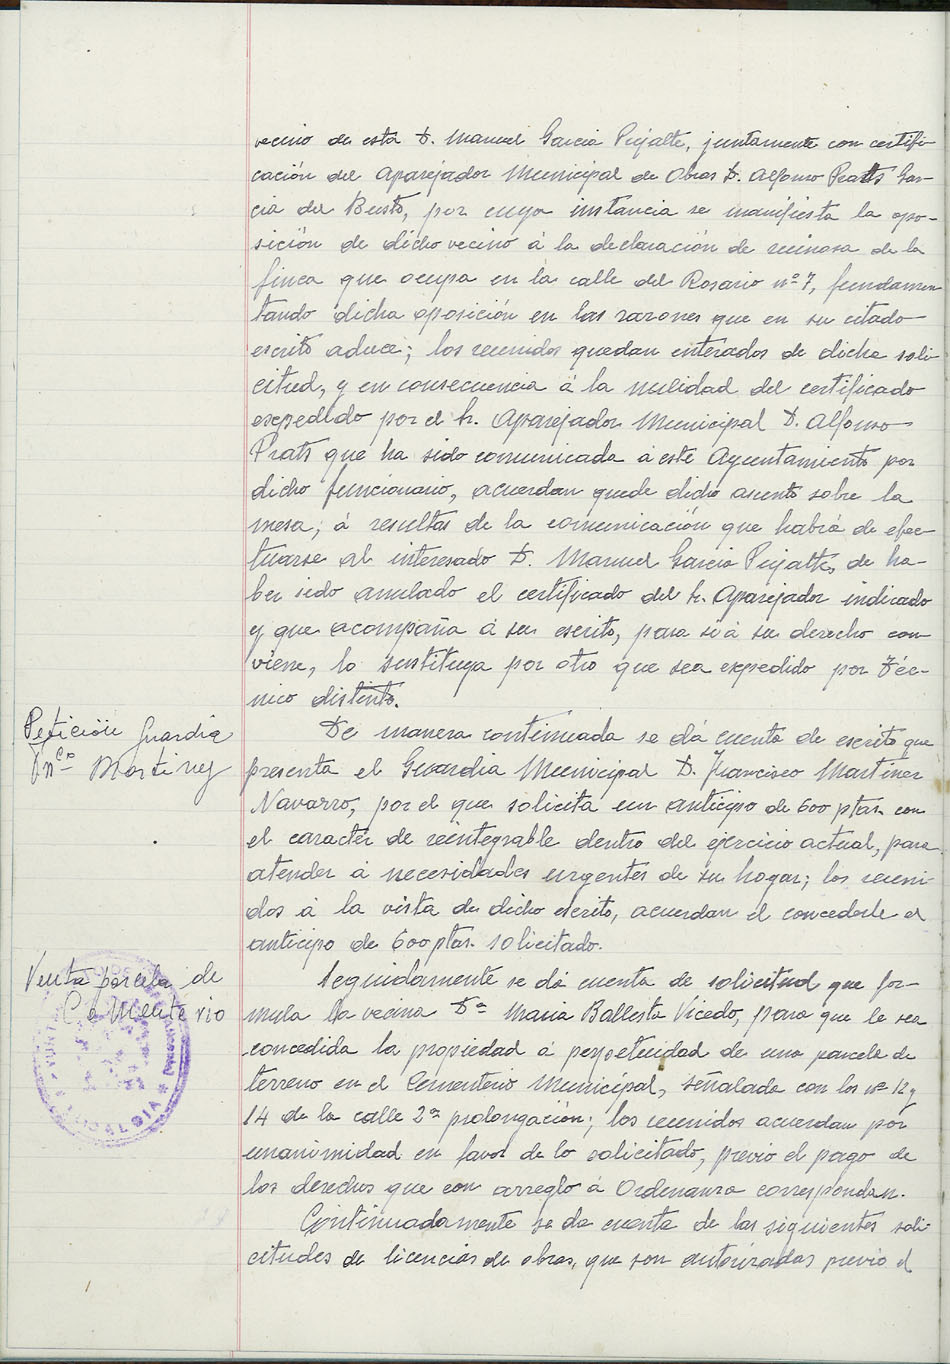 vecino de esta D. Manuel Garcia Pujalte, juntamente con certifi-
cación del Aparejador Municipal de Obras D. Alfonso Prats Gar-
cia del Busto, por cuya instancia se manifiesta la opo-
sición de dicho vecino á la declaración de ruinosa de la
finca que ocupa en la calle del Rosario nº 7, fundamen
tando dicha oposición en las razones que en su citado
escrito aduce; los reunidos quedan enterados de dicha soli-
citud, y en consecuencia á la nulidad del certificado
expedido por el Sr. Aparejador Municipal D. Alfonso
Prats que ha sido comunicada a este Ayuntamiento por
dicho funcionario, acuerdan quede dicho asunto sobre la
mesa, á resultas de la comunicación que habrá de efec-
tuarse al interesado D. Manuel Garcia Pujalte, de ha-
ber sido anulado el certificado del Sr. Aparejador indicado
y que acompaña á su escrito, para si á su derecho con-
viene, lo sustituya por otro que sea expedido por Téc-
nico distinto.
Petición Guardia
Fnco Martinez
De manera continuada se dá cuenta de escrito que
presenta el Guardia Municipal D. Francisco Martinez
Navarro, por el que solicita un anticipo de 600 ptas. con
el caracter de reintegrable dentro del ejercicio actual, para
atender á necesidades urgentes de su hogar; los reuni-
dos á la vista de dicho escrito, acuerdan el concederle el
anticipo de 600 ptas. solicitado.
Venta parcela de
Cementerio
Seguidamente se dá cuenta de solicitud que for-
mula la vecina Dª Maria Ballesta Vicedo, para que le sea
concedida la propiedad á perpetuidad de una parcela de
terreno en el Cementerio Municipal, señalada con los nº 12 y
14 de la calle 2ª prolongación; los reunidos acuerdan por
unanimidad en favor de lo solicitado, previo el pago de
los derechos que con arreglo á Ordenanza correspondan.
Continuadamente se da cuenta de las siguientes soli-
citudes de licencias de obras, que son autorizadas previo el